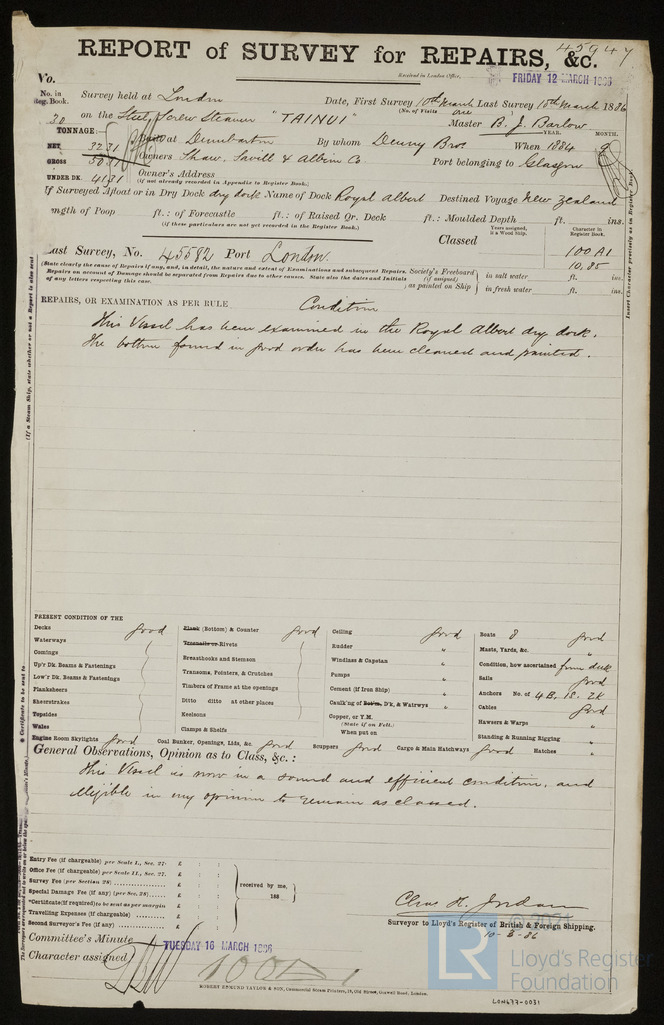 45947
REPORT of SURVEY for REPAIRS, &c.
Vo.
Received in London Office, FRIDAY 12 MARCH 1886
No. in Reg. Book.
Survey held at London Date, First Survey 10th March Last Survey 10th March 1886
(No. of Visits one )
30 on the Steel Screw Steamer "TAINUI" Master B. J. Barlow
YEAR. MONTH.
TONNAGE: Built at Dumbarton By whom Denny Bros When 1884 9
NET 3231 Owners Shaw, Savill & Albion Co Port belonging to Glasgow
GROSS 5031
Owner's Address
UNDER DK. 4131 (if not already recorded in Appendix to Register Book.)
If Surveyed Afloat or in Dry Dock dry dock Name of Dock Royal Albert Destined Voyage New Zealand
ength of Poop ft.: of Forecastle ft.: of Raised Qr. Deck ft.: Moulded Depth ft. ins.
(if these particulars are not yet recorded in the Register Book.)
Years assigned, if a Wood Ship. Character in Register Book.
Classed 100 A1
10,85
ast Survey, No. 45582 Port London.
(State clearly the cause of Repairs if any, and, in detail, the nature and extent of Examinations and subsequent Repairs.
Repairs on account of Damage should be separated from Repairs due to other causes. State also the dates and Initials of any letters respecting this case.
Society's Freeboard (if assigned) as painted on Ship
in salt water ft. ins.
in fresh water ft. ins.
Insert Character precisely as in Register Book.
REPAIRS, OR EXAMINATION AS PER RULE Condition
This Vessel has been examined in the Royal Albert dry dock.
The bottom found in good order has been cleaned and painted.
(If a Steam Ship, state whether or not a Report is also sent
Certificate to be sent to
PRESENT CONDITION OF THE
Decks good
Waterways
Comings
Up'r Dk. Beams & Fastenings
Low'r Dk. Beams & Fastenings
Planksheers
Sheerstrakes
Topsides
Wales
Plank (Bottom) & Counter good
Treenails or Rivets
Breasthooks and Stemson
Transoms, Pointers, & Crutches
Timbers of Frame at the openings
Ditto ditto at other places
Keelsons
Clamps & Shelfs
Ceiling good
Rudder "
Windlass & Capstan "
Pumps "
Cement (if Iron Ship) "
Caulk'ng of Bot'm, D'k, & Watrwys "
Copper, or Y.M.
(State if on Felt.)
When put on
Boats 8 good
Masts, Yards, &c. "
Condition, how ascertained from deck
Sails good
Anchors No. of 4B. 1S. 2K
Cables good
Hawsers & Warps "
Standing & Running Rigging "
Engine Room Skylights good Coal Bunker, Openings, Lids, &c. good Scuppers good Cargo & Main Hatchways good Hatches "
General Observations, Opinion as to Class, &c. :
This Vessel is now in a sound and efficient condition, and
eligible in my opinion to remain as classed.
Entry Fee (if chargeable) per Scale I., Sec. 27. £ : :
Office Fee (if chargeable) per Scale II., Sec. 27. £ : :
Survey Fee (per Section 28) £ : :
Special Damage Fee (if any) (per Sec. 28) £ : :
*Certificate (if required) to be sent as per margin £ : :
Travelling Expenses (if chargeable) £ : :
Second Surveyor's Fee (if any) £ : :
received by me,
188
Chas H. Jordan
Surveyor to Lloyd's Register of British & Foreign Shipping.
10-3-86
Committee's Minute TUESDAY 16 MARCH 1886
Character assigned 100 A 1
ROBERT EDMUND TAYLOR & SON, Commercial Steam Printers, 19, Old Street, Goswell Road, London.
© 2021
LR
Lloyd's Register
Foundation
LON677-0031